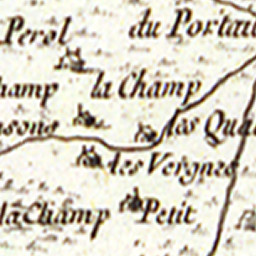 Perol
du Portau
Champ
la Champ
sons
les Qua
les Vergnes
la Champ
Petit